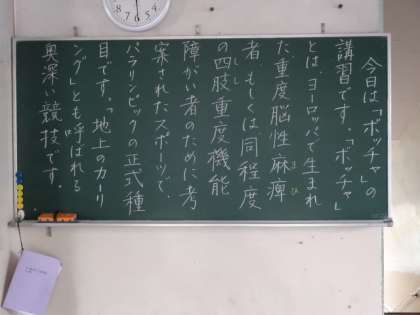 今日は「ボッチャ」の
講習です。「ボッチャ」
とは、ヨーロッパで生まれ
た重度脳性麻痺
まひ
者、もしくは同程度
の四肢重度機能
しし
障がい者のために考
案されたスポーツで、
パラリンピックの正式種
目です。「地上のカーリ
ング」とも呼ばれる
奥深い競技です。